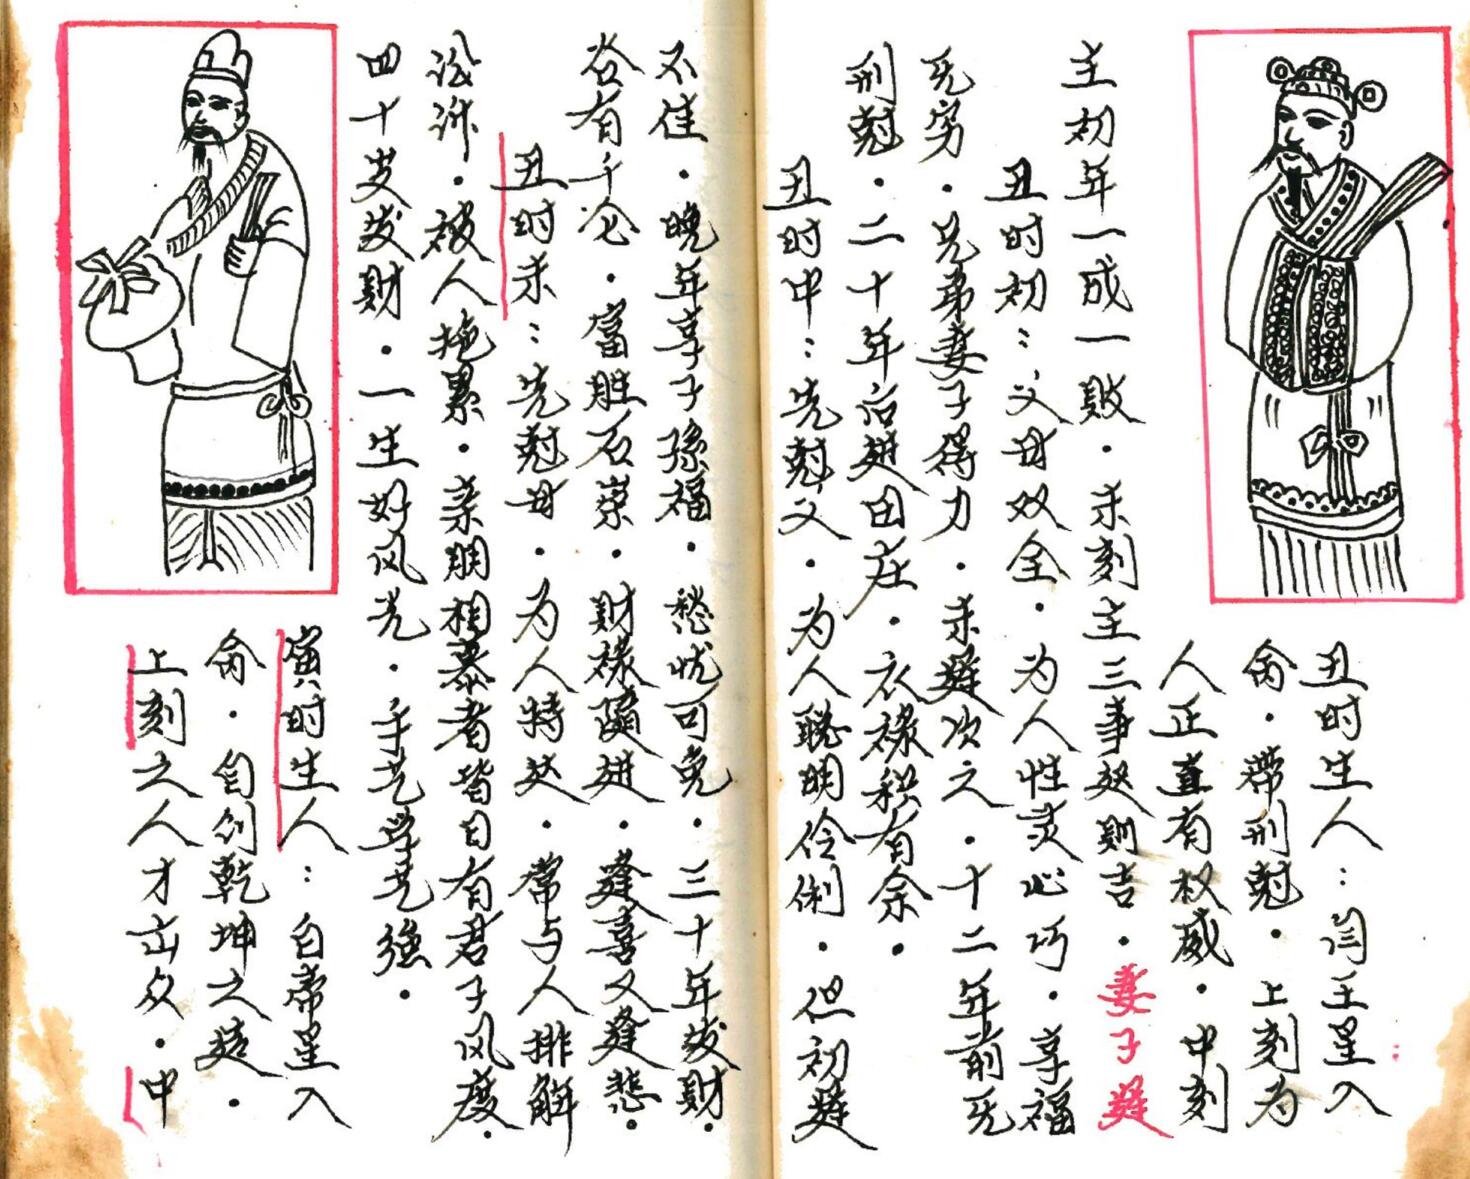 丑时生人：闫王星入
命·带刑尅·上刻为
人正直有权威·中刻
主初年一成一败·末刻主三事奴则吉·妻子延
丑时初：父母双全·为人性灵心巧·享福
无穷·兄弟妻子得力·末延次之·十二年前无
刑尅·二十年后进田庄·衣禄积有余·
丑时中：先尅父·为人聪明伶俐·但初延
不佳·晚年享子孫福·愁忧可免·三十年发财·
谷有千仓·富胜石崇·财禄随进·逢喜又逢悲·
丑时末：先尅母·为人特达·常与人排解
讼诉·被人拖累·亲朋相慕者皆曰有君子风度·
四十岁发财·一生好风光·手艺学艺強·
寅时生人：白帝星入
命·自创乾坤之造·
上刻之人才出众·中